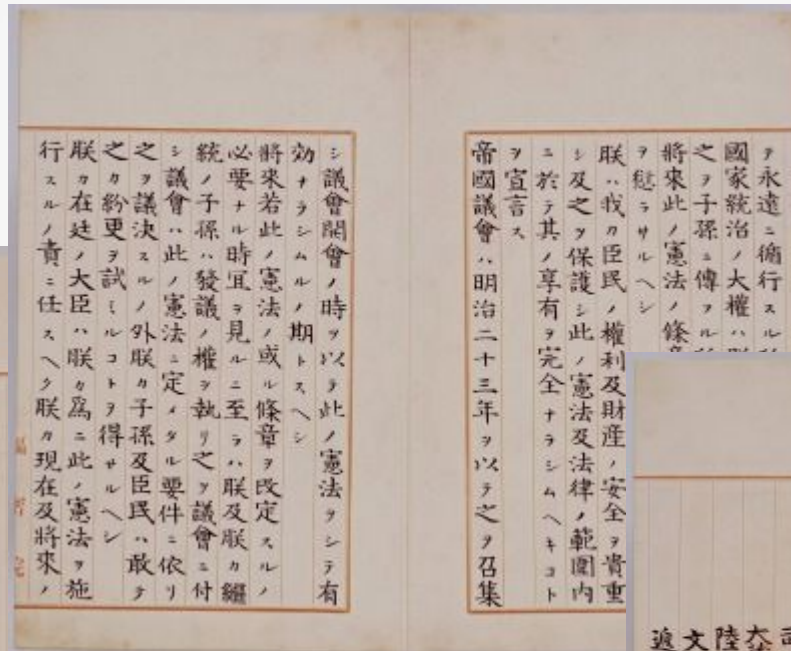 テ永遠ニ循行スル
國家統治ノ大權ハ
之ヲ子孫ニ傳フル
將來此ノ憲法ノ條章
ヲ愆ラサルヘシ
朕ハ我カ臣民ノ權利及財産ノ安全ヲ貴重
シ及之ヲ保護シ此ノ憲法及法律ノ範圍内
ニ於テ其ノ享有ヲ完全ナラシムヘキコト
ヲ宣言ス
帝國議會ハ明治二十三年ヲ以テ之ヲ召集
シ議會開會ノ時ヲ以テ此ノ憲法ヲシテ有
効ナラシムルノ期トスヘシ
將來若此ノ憲法ノ或ル條章ヲ改定スルノ
必要ナル時宜ヲ見ルニ至ラハ朕及朕カ繼
統ノ子孫ハ發議ノ權ヲ執リ之ヲ議會ニ付
シ議會ハ此ノ憲法ニ定メタル要件ニ依リ
之ヲ議決スルノ外朕カ子孫及臣民ハ敢テ
之カ紛更ヲ試ミルコトヲ得サルヘシ
朕カ在廷ノ大臣ハ朕カ爲ニ此ノ憲法ヲ施
行スルノ責ニ任スヘク朕カ現在及將來ノ
陸
文
遞